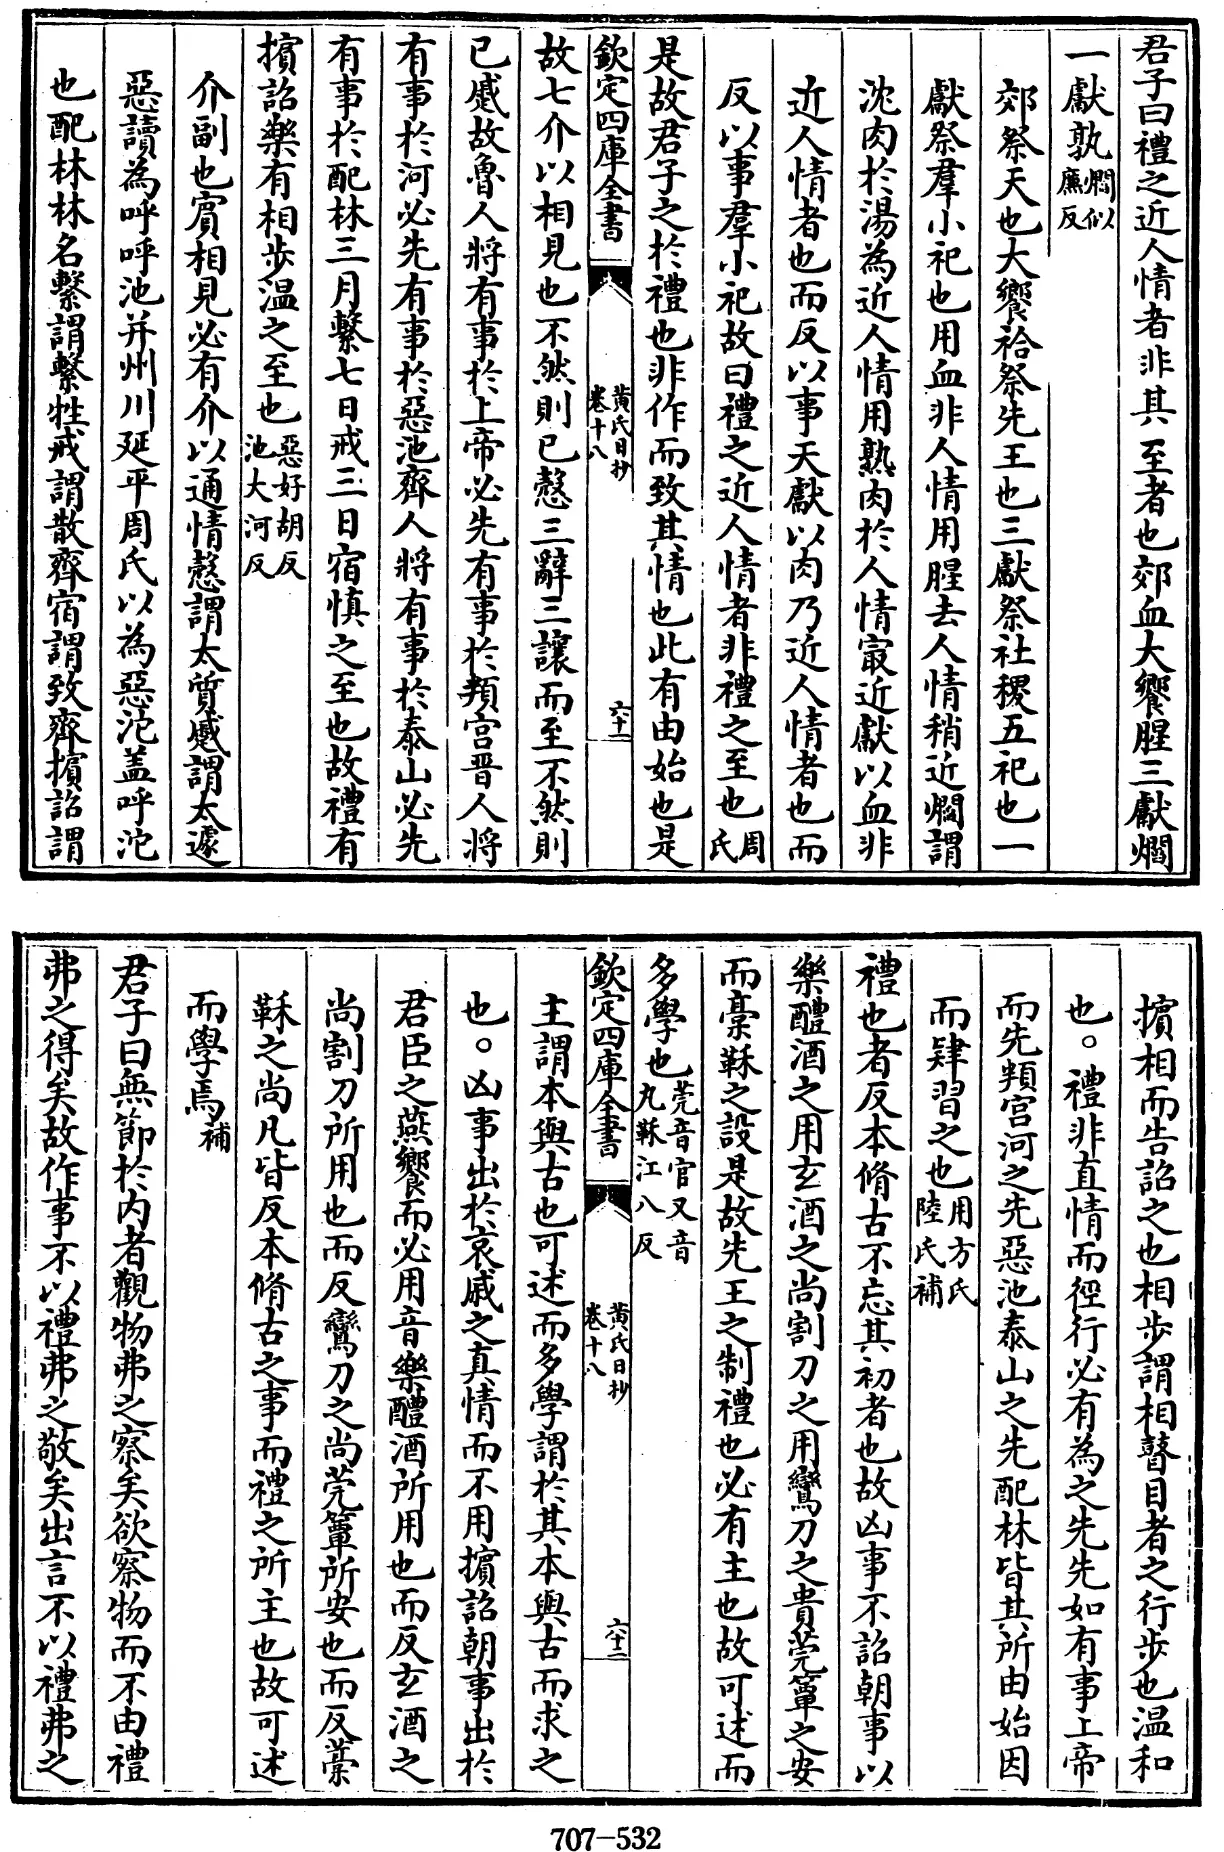 君子曰禮之近人情者非其至者也郊血大饗腥三獻爓
一獻孰爓似廉反
郊祭天也大饗祫祭先王也三獻祭社稷五祀也一
獻祭羣小祀也用血非人情用腥去人情稍近爓謂
沈肉於湯為近人情用熟肉於人情㝡近獻以血非
近人情者也而反以事天獻以肉乃近人情者也而
反以事羣小祀故曰禮之近人情者非禮之至也周氏
是故君子之於禮也非作而致其情也此有由始也是
欽定四庫全書 黄氏日抄 卷十八 六十一
故七介以相見也不然則已慤三辭三讓而至不然則
已蹙故魯人將有事於上帝必先有事於頖宮晉人將
有事於河必先有事於惡池齊人將有事於泰山必先
有事於配林三月繫七日戒三日宿慎之至也故禮有
擯詔樂有相步温之至也惡好胡反池大河反
介副也賓相見必有介以通情慤謂太質蹙謂太遽
惡讀為呼呼池并州川延平周氏以為惡沱盖呼沱
也配林林名繫謂繫牲戒謂散齊宿謂致齊擯詔謂
擯相而告詔之也相步謂相瞽目者之行步也温和
也○禮非直情而徑行必有為之先先如有事上帝
而先頖宮河之先惡池泰山之先配林皆其所由始因
而肄習之也用方氏陸氏補
禮也者反本脩古不忘其初者也故凶事不詔朝事以
樂醴酒之用玄酒之尚割刀之用鸞刀之貴莞簟之安
而稾鞂之設是故先王之制禮也必有主也故可述而
多學也莞音官又音丸鞂江八反
欽定四庫全書 黄氏日抄 卷十八 六十二
主謂本與古也可述而多學謂於其本與古而求之
也○凶事出於哀戚之真情而不用擯詔朝事出於
君臣之燕饗而必用音樂醴酒所用也而反玄酒之
尚割刀所用也而反鸞刀之尚莞簟所安也而反稾
鞂之尚凡皆反本脩古之事而禮之所主也故可述
而學焉補
君子曰無節於内者觀物弗之察矣欲察物而不由禮
弗之得矣故作事不以禮弗之敬矣出言不以禮弗之
707-532